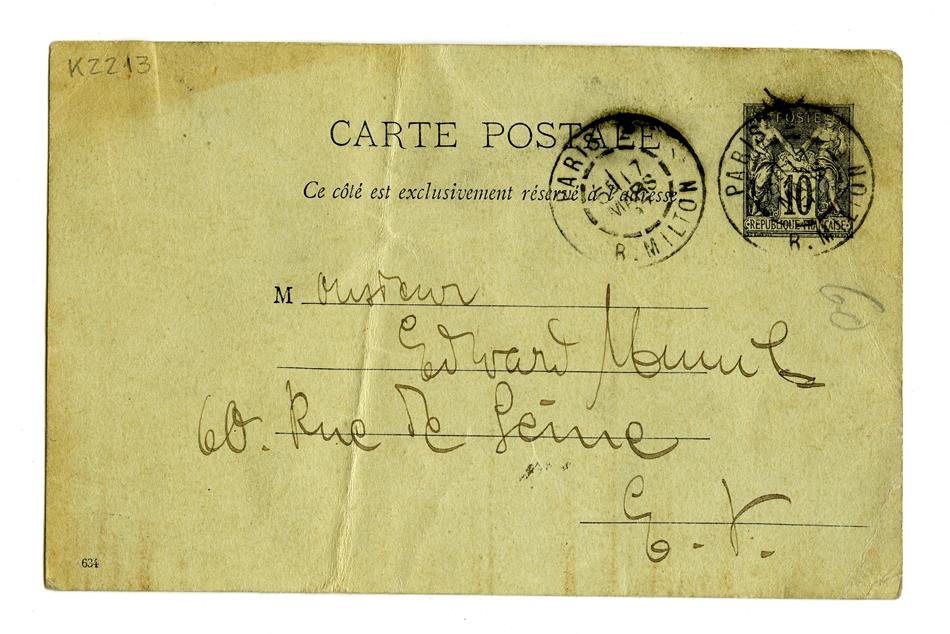 K2213
CARTE POSTALE
Ce côté est exclusivement réservé à l'adresse
PARIS
17
MARS
R. MILTON
POSTES
10
REPUBLIQUE FRANÇAISE
PARIS
R. MILTON
Monsieur
Edvard Munch
60. Rue de Seine
E. V.
60
634